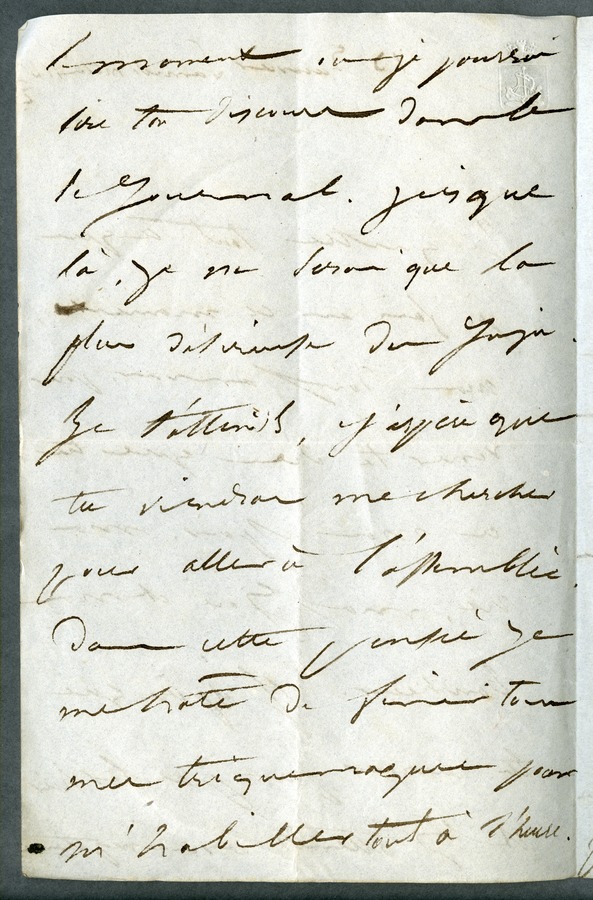 le moment où je pourrai
lire ton discours dans le
le Journal. jusque
là, je ne serai que la
plus désireuse des Juju.
Je t'attends, j'espère que
tu viendras me chercher
pour aller à l'assemblée.
Dans cette pensée je
me hâte de finir tous
mes triquemaques pour
m'habiller tout à l'heure.